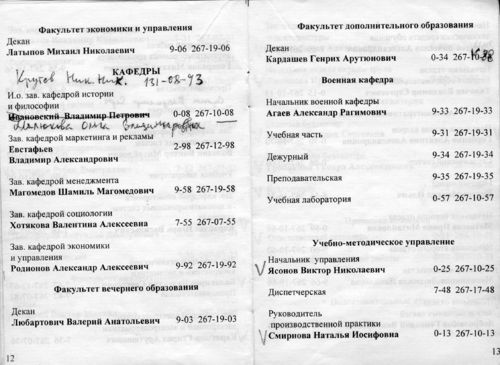 Факультет экономики и управления
Декан
Латыпов Михаил Николаевич 9-06 267-19-06
Крутов Ник. Ник. 131-08-93
КАФЕДРЫ
И.о. зав. кафедрой истории
и философии
Ивановский Владимир Петрович 0-08 267-10-08
Ольга Владимировна
Зав. кафедрой маркетинга и рекламы
Евстафьев 2-98 267-12-98
Владимир Александрович
Зав. кафедрой менеджмента
Магомедов Шамиль Магомедович 9-58 267-19-58
Зав. кафедрой социологии
Хотякова Валентина Алексеевна 7-55 267-07-55
Зав. кафедрой экономики
и управления
Родионов Александр Алексеевич 9-92 267-19-92
Факультет вечернего образования
Декан
Любартович Валерий Анатольевич 9-03 267-19-03
12
Факультет дополнительного образования
Декан
Кардашев Генрих Арутюнович 0-34 267-10-38
Военная кафедра
Начальник военной кафедры
Агаев Александр Рагимович 9-33 267-19-33
Учебная часть 9-31 267-19-31
Дежурный 9-34 267-19-34
Преподавательская 9-35 267-19-35
Учебная лаборатория 0-57 267-10-57
Учебно-методическое управление
Начальник управления
Ясонов Виктор Николаевич 0-25 267-10-25
Диспетчерская 7-48 267-17-48
Руководитель
производственной практики
Смирнова Наталья Иосифовна 0-13 267-10-13
13